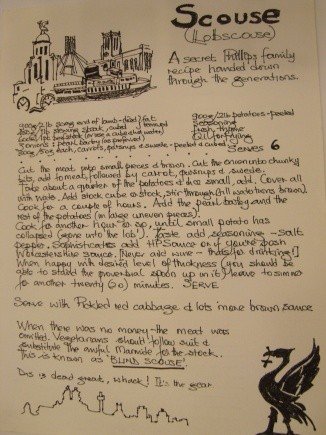 Scouse
(Lobscouse)
A secret Phillips family
recipe handed down
through the generations.
900g/2lb scrag end of lamb
stewing steak, cubed
900g/2lb potatoes - peeled
Seasoning
fresh thyme
Oil for frying
3 onions pearl barley
carrots, & swede - peeled & cubed
SERVES 6
Cut the meat into small pieces & brown. Cut the onion into chunky
bits, add in meat, followed by carrot, & swede.
Take about a quarter of the potatoes & small, add. Cover all
with water. Add stock cube or stock, stir through
Cook for a couple of hours. Add the pearl barley and the
rest of the potatoes (in large uneven pieces).
Cook for another hour or so, until small potato has
collapsed (gone into the 'lob'). Taste add seasoning - salt
pepper. Sophisticates add HP Sauce or if you're posh
Worcestershire sauce. Never add wine - that's for drinking!
When happy with desired level of thickness (you should be
able to stand the proverbial spoon up in it) leave to simmer
for another twenty (20) minutes. SERVE
Serve with Pickled red cabbage & lots more brown sauce
When there was no money - the meat was
omitted. Vegetarians should follow suit &
substitute the awful Marmite for the stock.
This is known as BLIND SCOUSE!
Dis is dead great, whack! It's the gear